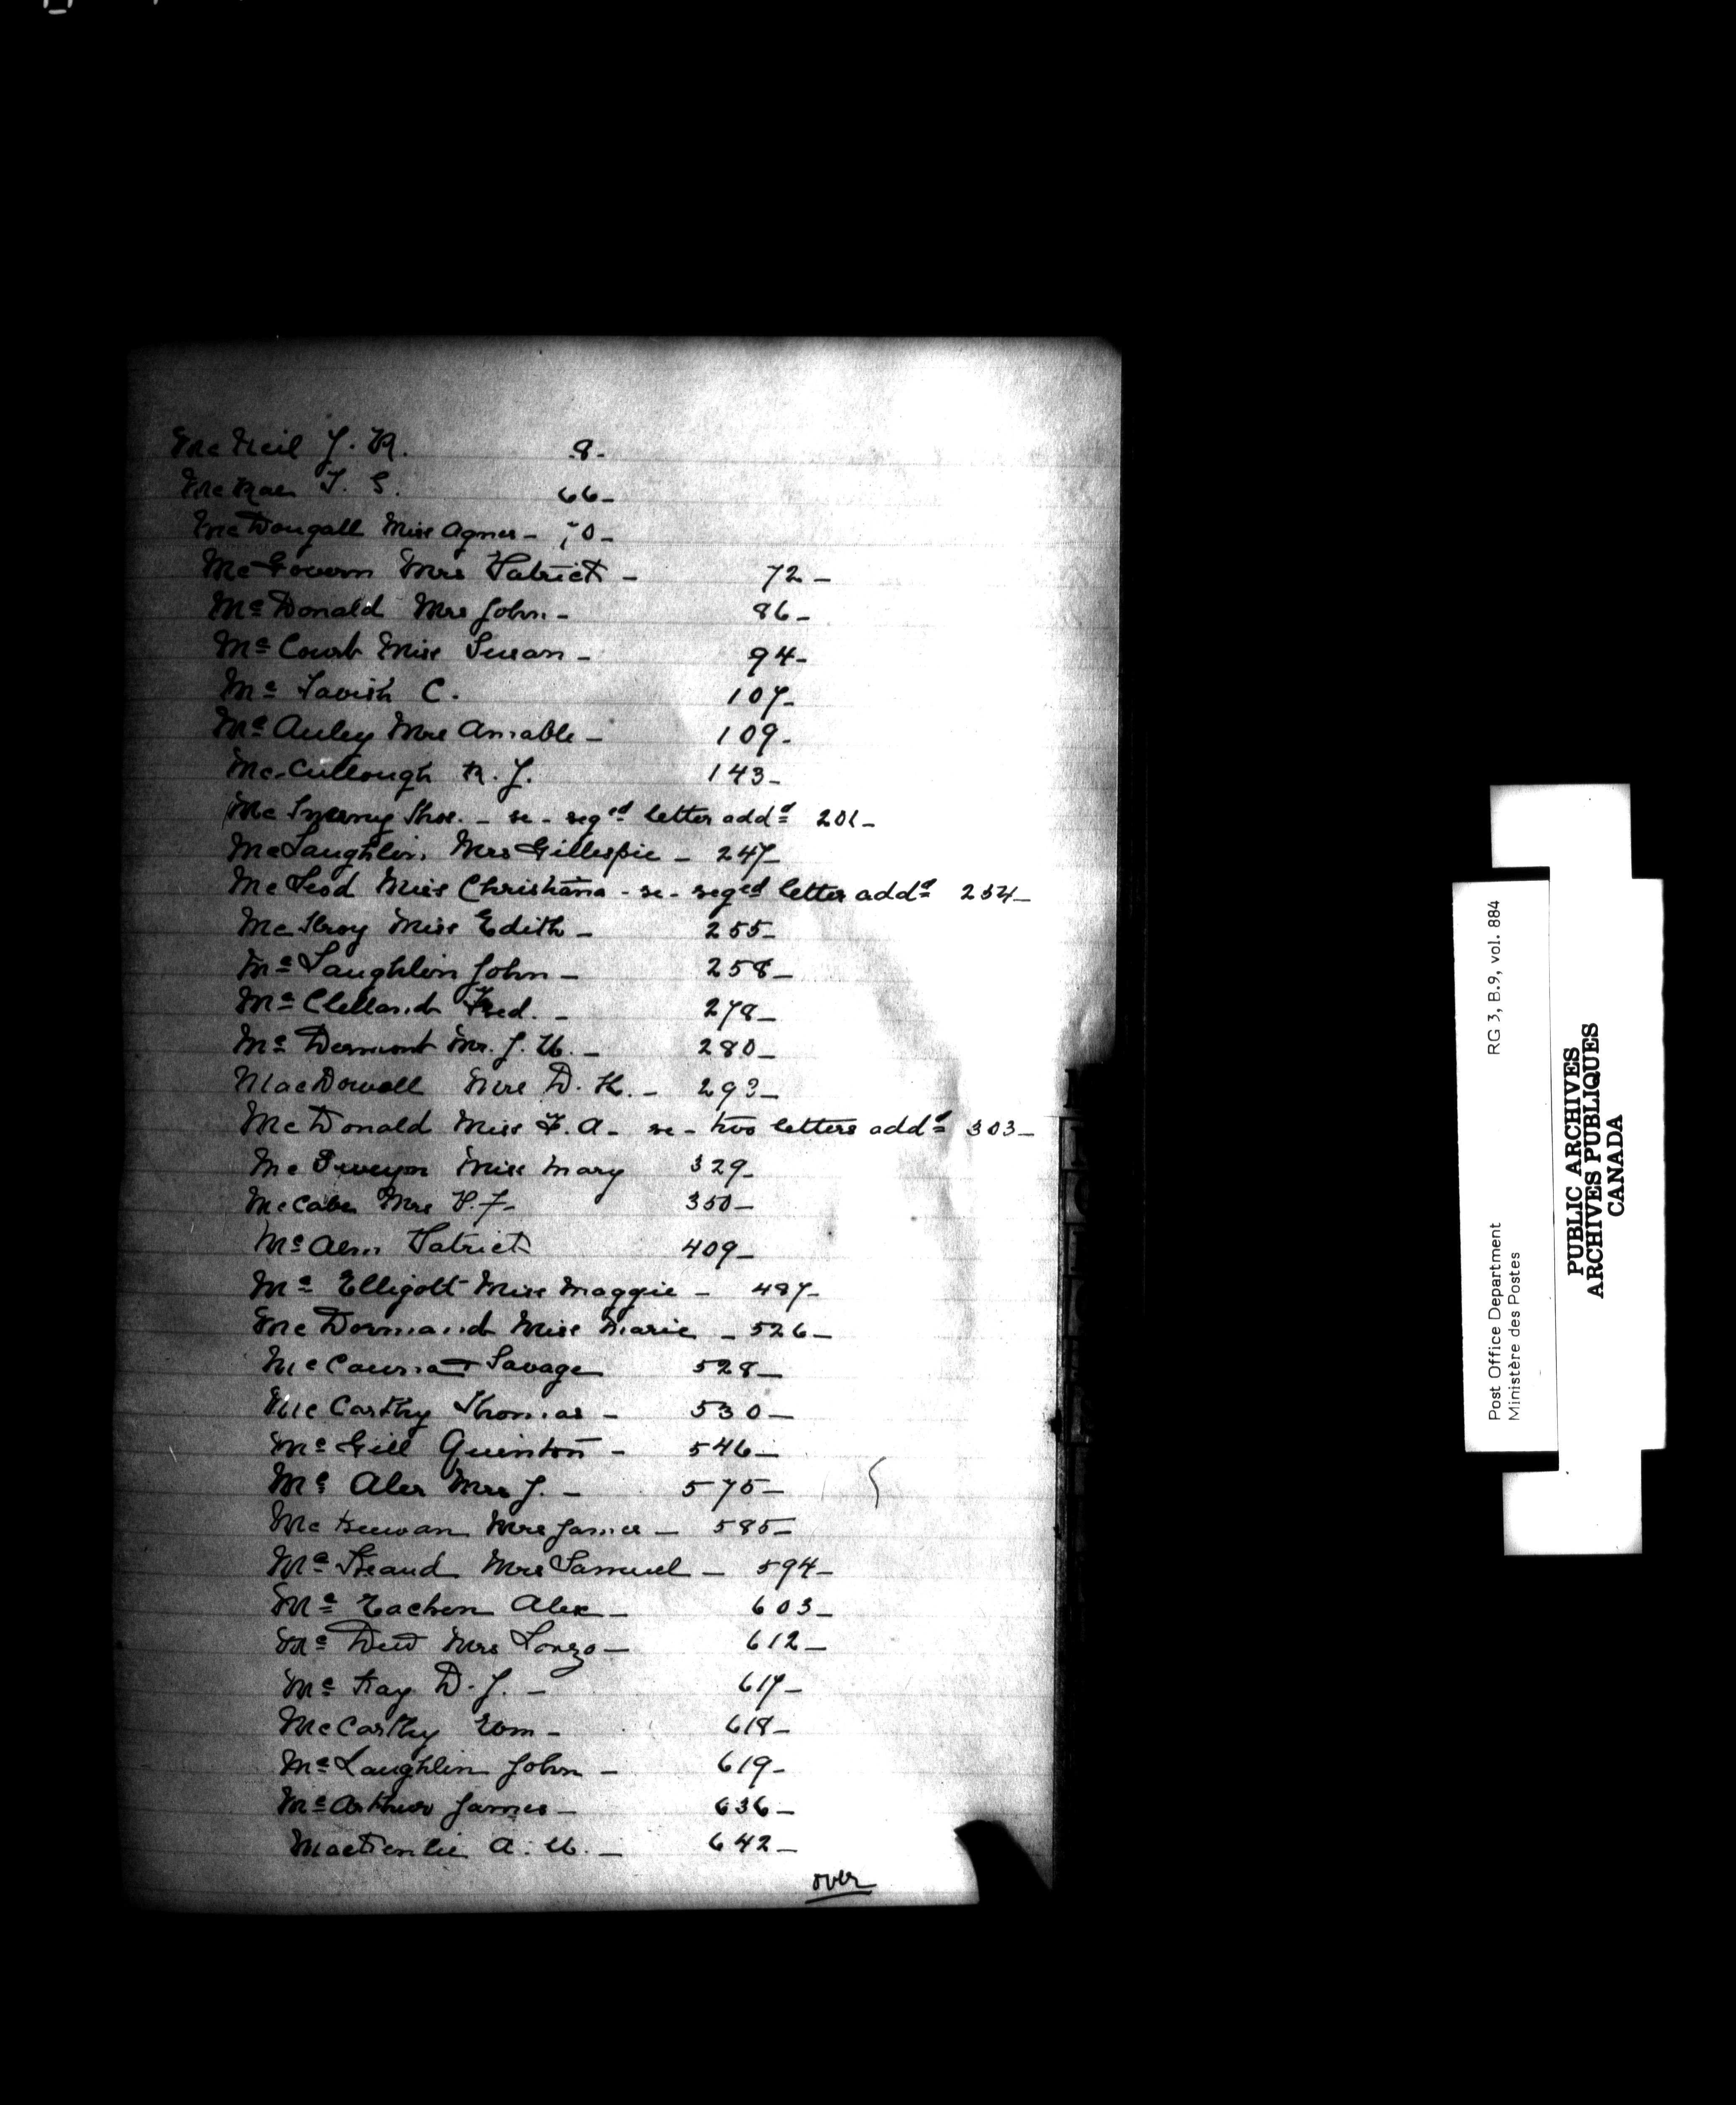 McNeil J. R. 8-
McRae J. S. 66-
McDougall Miss Agnes - 70-
McGovern Mrs Patrick - 72-
Mc Donald Mrs John - 86-
Mc Court Miss Susan - 94-
Mc Tavish C. 107-
Mc Auley Mrs Amable - 109-
McCullough R. J. 143-
McInerny Thos. - re - regd letter addd 201-
McLaughlin Mrs Gillespie - 247-
McLeod Miss Christiana - re - reged letter addd 254-
McIlroy Miss Edith - 255-
Mc Laughlin John - 258-
Mc Clelland Fred. - 278-
Mc Dermont Mr. J. U. - 280-
MacDowall Mrs D. H. - 293-
McDonald Miss F. A. - re - two letters addd 303-
Mc Miss Mary 329-
McCabe Mrs P. F. 350-
Mc Patrick 409-
Mc Elligott Miss Maggie - 487-
McDormand Miss Marie - 526-
Savage 528-
McCarthy Thomas - 530-
Mc Gill Quinton - 546-
Mc Aler Mrs J. - 575-
McKeewan Mrs James - 585-
Mc Mrs Samuel - 594-
Mc Eachern Alex - 603-
Mc Mrs Lonzo - 612-
Mc Kay D. J. - 617-
McCarthy Wm - 618-
Mc Laughlin John - 619-
Mc Arthur James - 636-
MacKenzie A. U. - 642-
over
Post Office Department RG 3, B.9, vol. 884
Ministère des Postes
PUBLIC ARCHIVES
ARCHIVES PUBLIQUES
CANADA